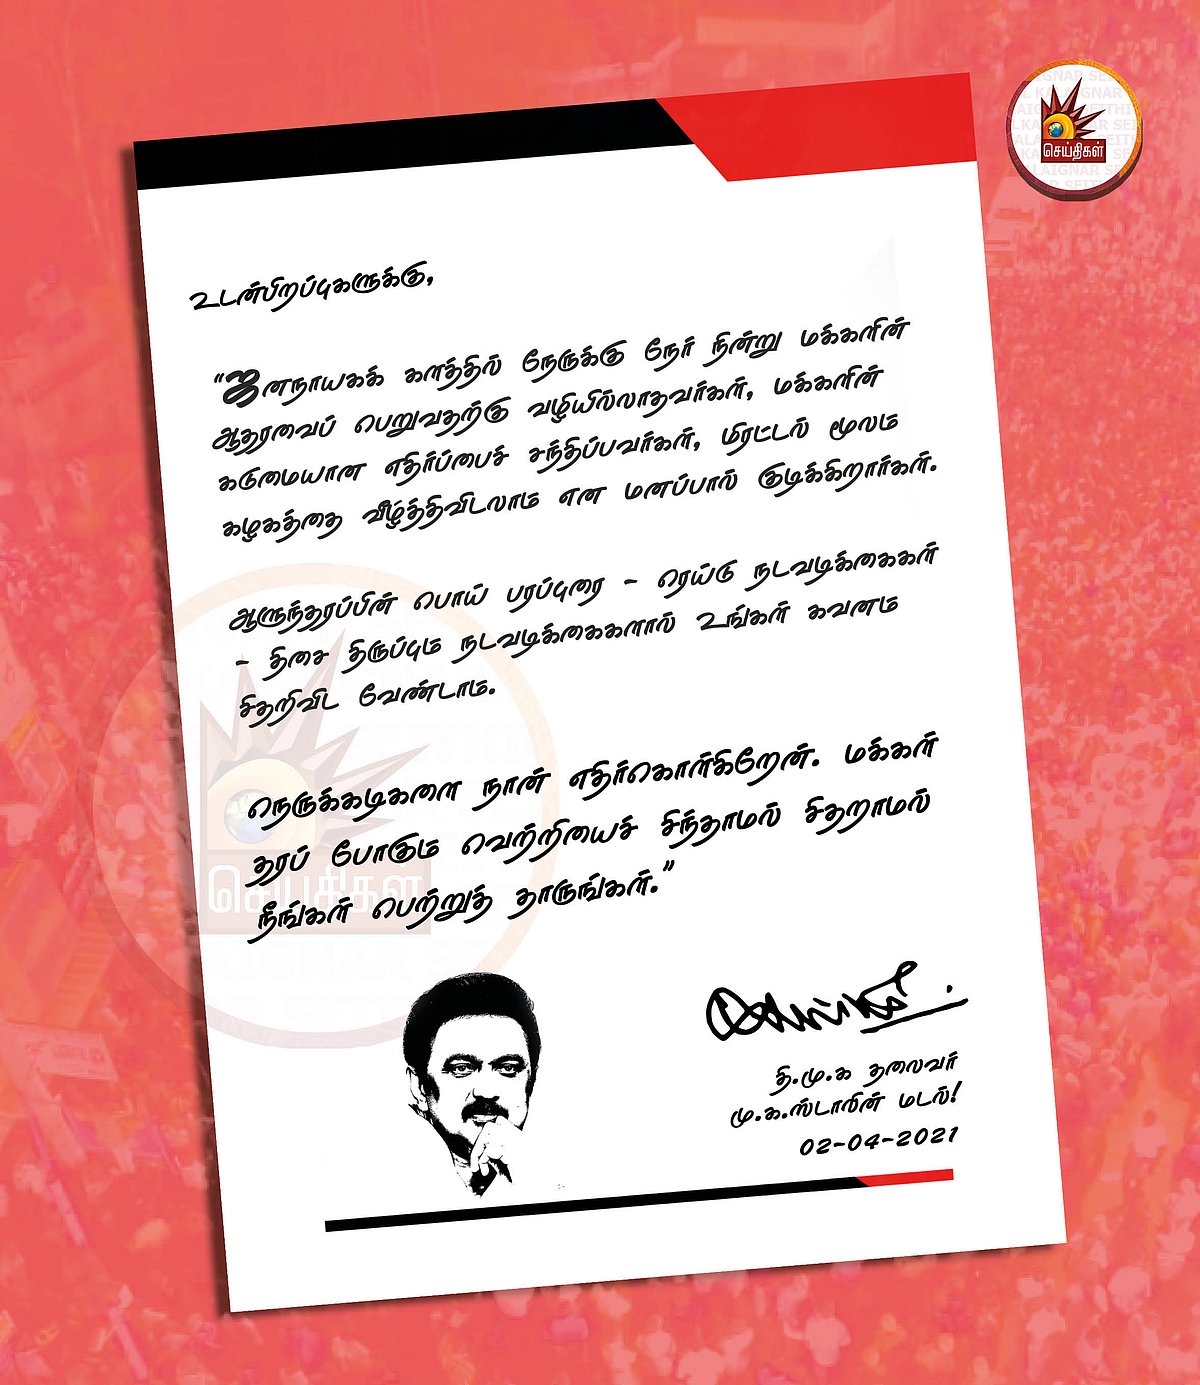 செய்திகள்
உடன்பிறப்புகளுக்கு,
“ஜனநாயகக் களத்தில் நேருக்கு நேர் நின்று மக்களின்
ஆதரவைப் பெறுவதற்கு வழியில்லாதவர்கள், மக்களின்
கடுமையான எதிர்ப்பைச் சந்திப்பவர்கள், மிரட்டல் மூலம்
கழகத்தை வீழ்த்திவிடலாம் என மனப்பால் குடிக்கிறார்கள்.
ஆளுந்தரப்பின் பொய் பரப்புரை - ரெய்டு நடவடிக்கைகள்
- திசை திருப்பும் நடவடிக்கைகளால் உங்கள் கவனம்
சிதறிவிட வேண்டாம்.
நெருக்கடிகளை நான் எதிர்கொள்கிறேன். மக்கள்
தரப் போகும் வெற்றியைச் சிந்தாமல் சிதறாமல்
நீங்கள் பெற்றுத் தாருங்கள்.”
செய்திகள்
தி.மு.க தலைவர்
மு.க.ஸ்டாலின் மடல்!
02-04-2021